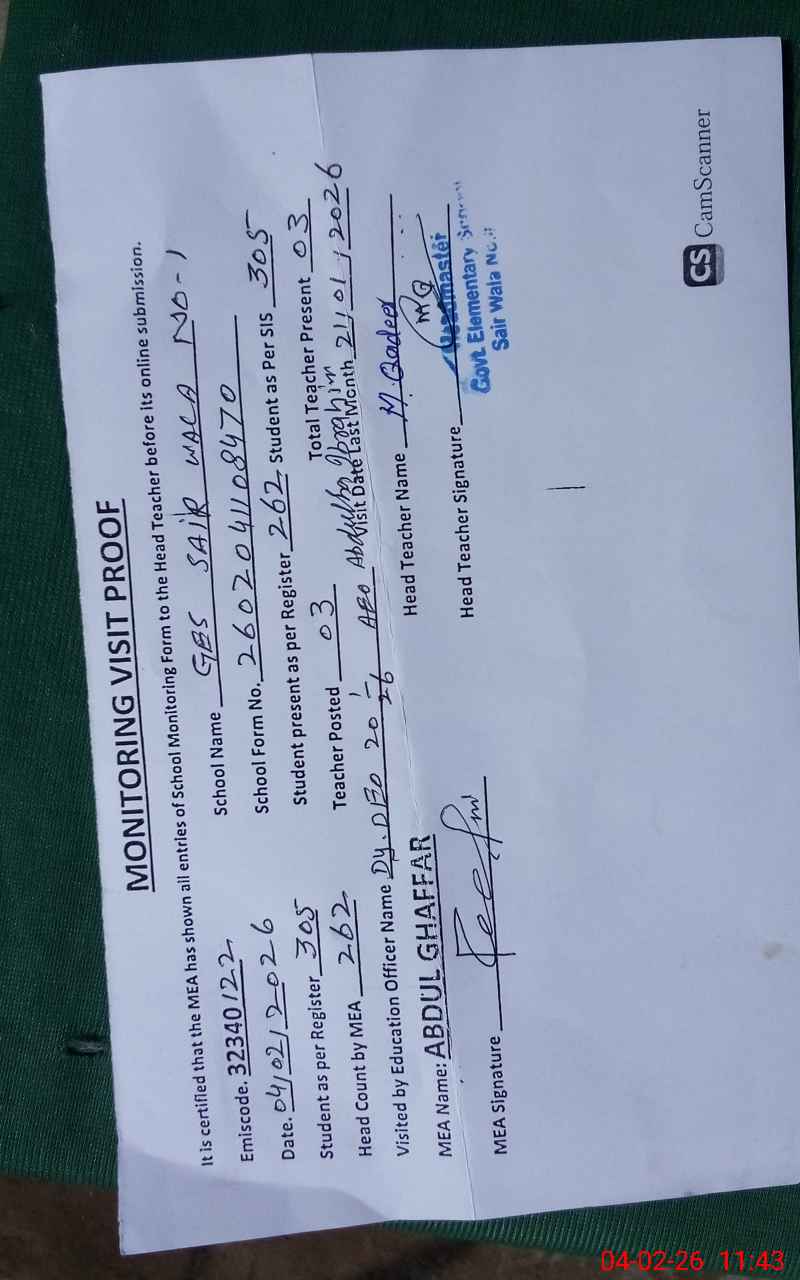 MONITORING VISIT PROOF
It is certified that the MEA has shown all entries of School Monitoring Form to the Head Teacher before its online submission.
Emiscode. 32340122 School Name GES SAIR WALA NO-1
Date. 04/02/2026 School Form No. 2602041108470
Student as per Register 305 Student present as per Register 262 Student as Per SIS 305
Head Count by MEA 262 Teacher Posted 03 Total Teacher Present 03
Visited by Education Officer Name Dy. DEO 20-1-26 AEO Abdulha Ibrahim Visit Date Last Month 21/01/2026
MEA Name: ABDUL GHAFFAR Head Teacher Name M. Qadeer
MEA Signature Head Teacher Signature MQ
Headmaster
Govt. Elementary School
Sair Wala No.
CS CamScanner
04-02-26 11:43